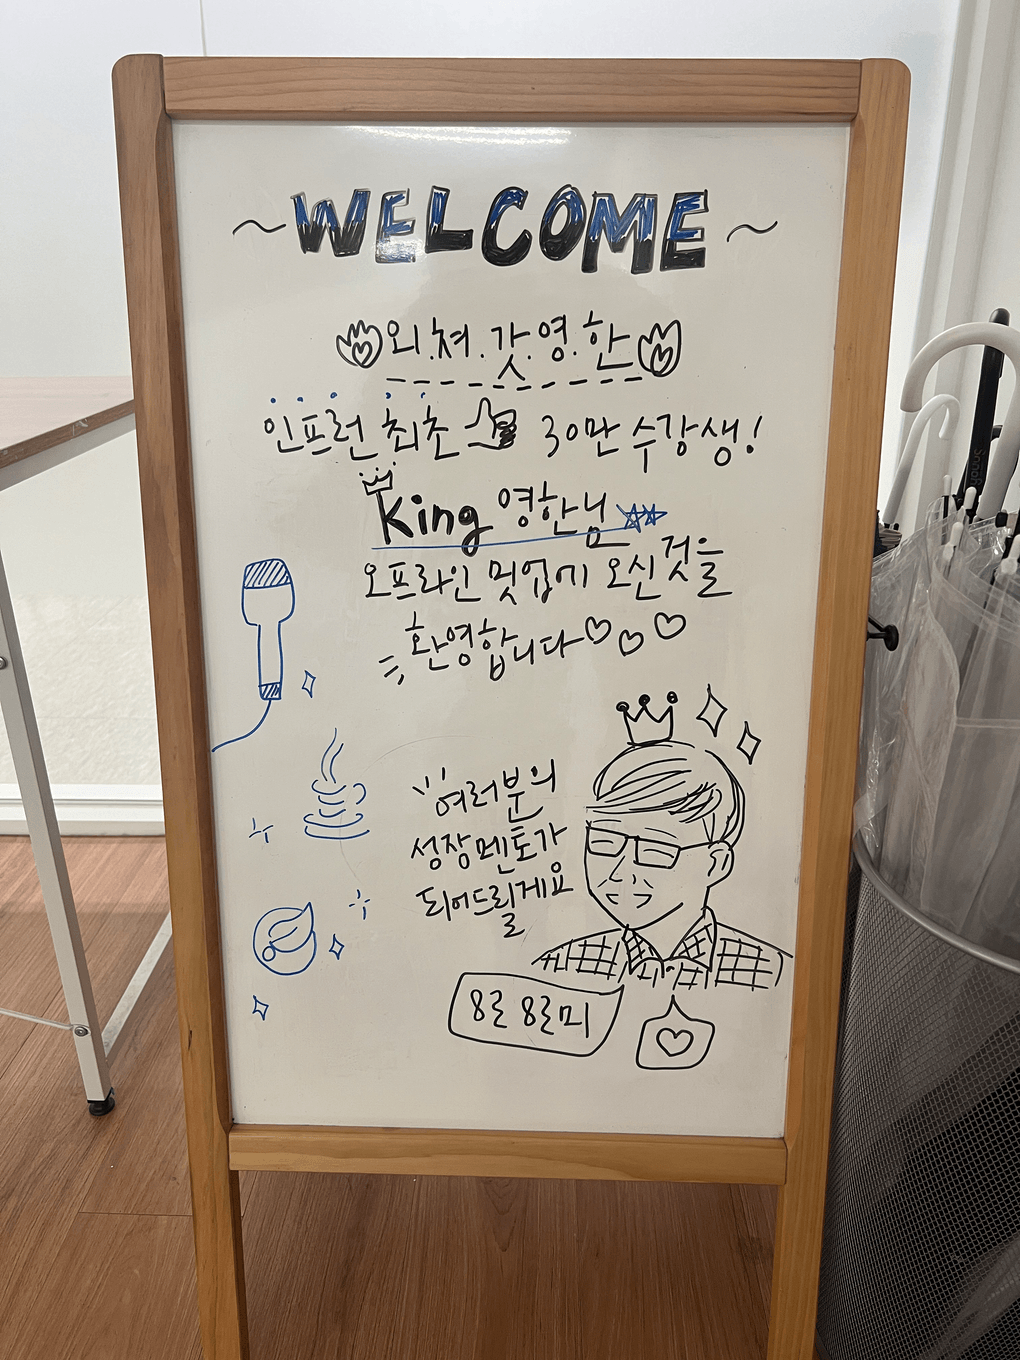 ~WELCOME~
외.쳐.갓.영.한
인프런 최초 30만 수강생!
King 영한님
오프라인 밋업에 오신것을
환영합니다
여러분의
성장멘토가
되어드릴게요
8로 8로미